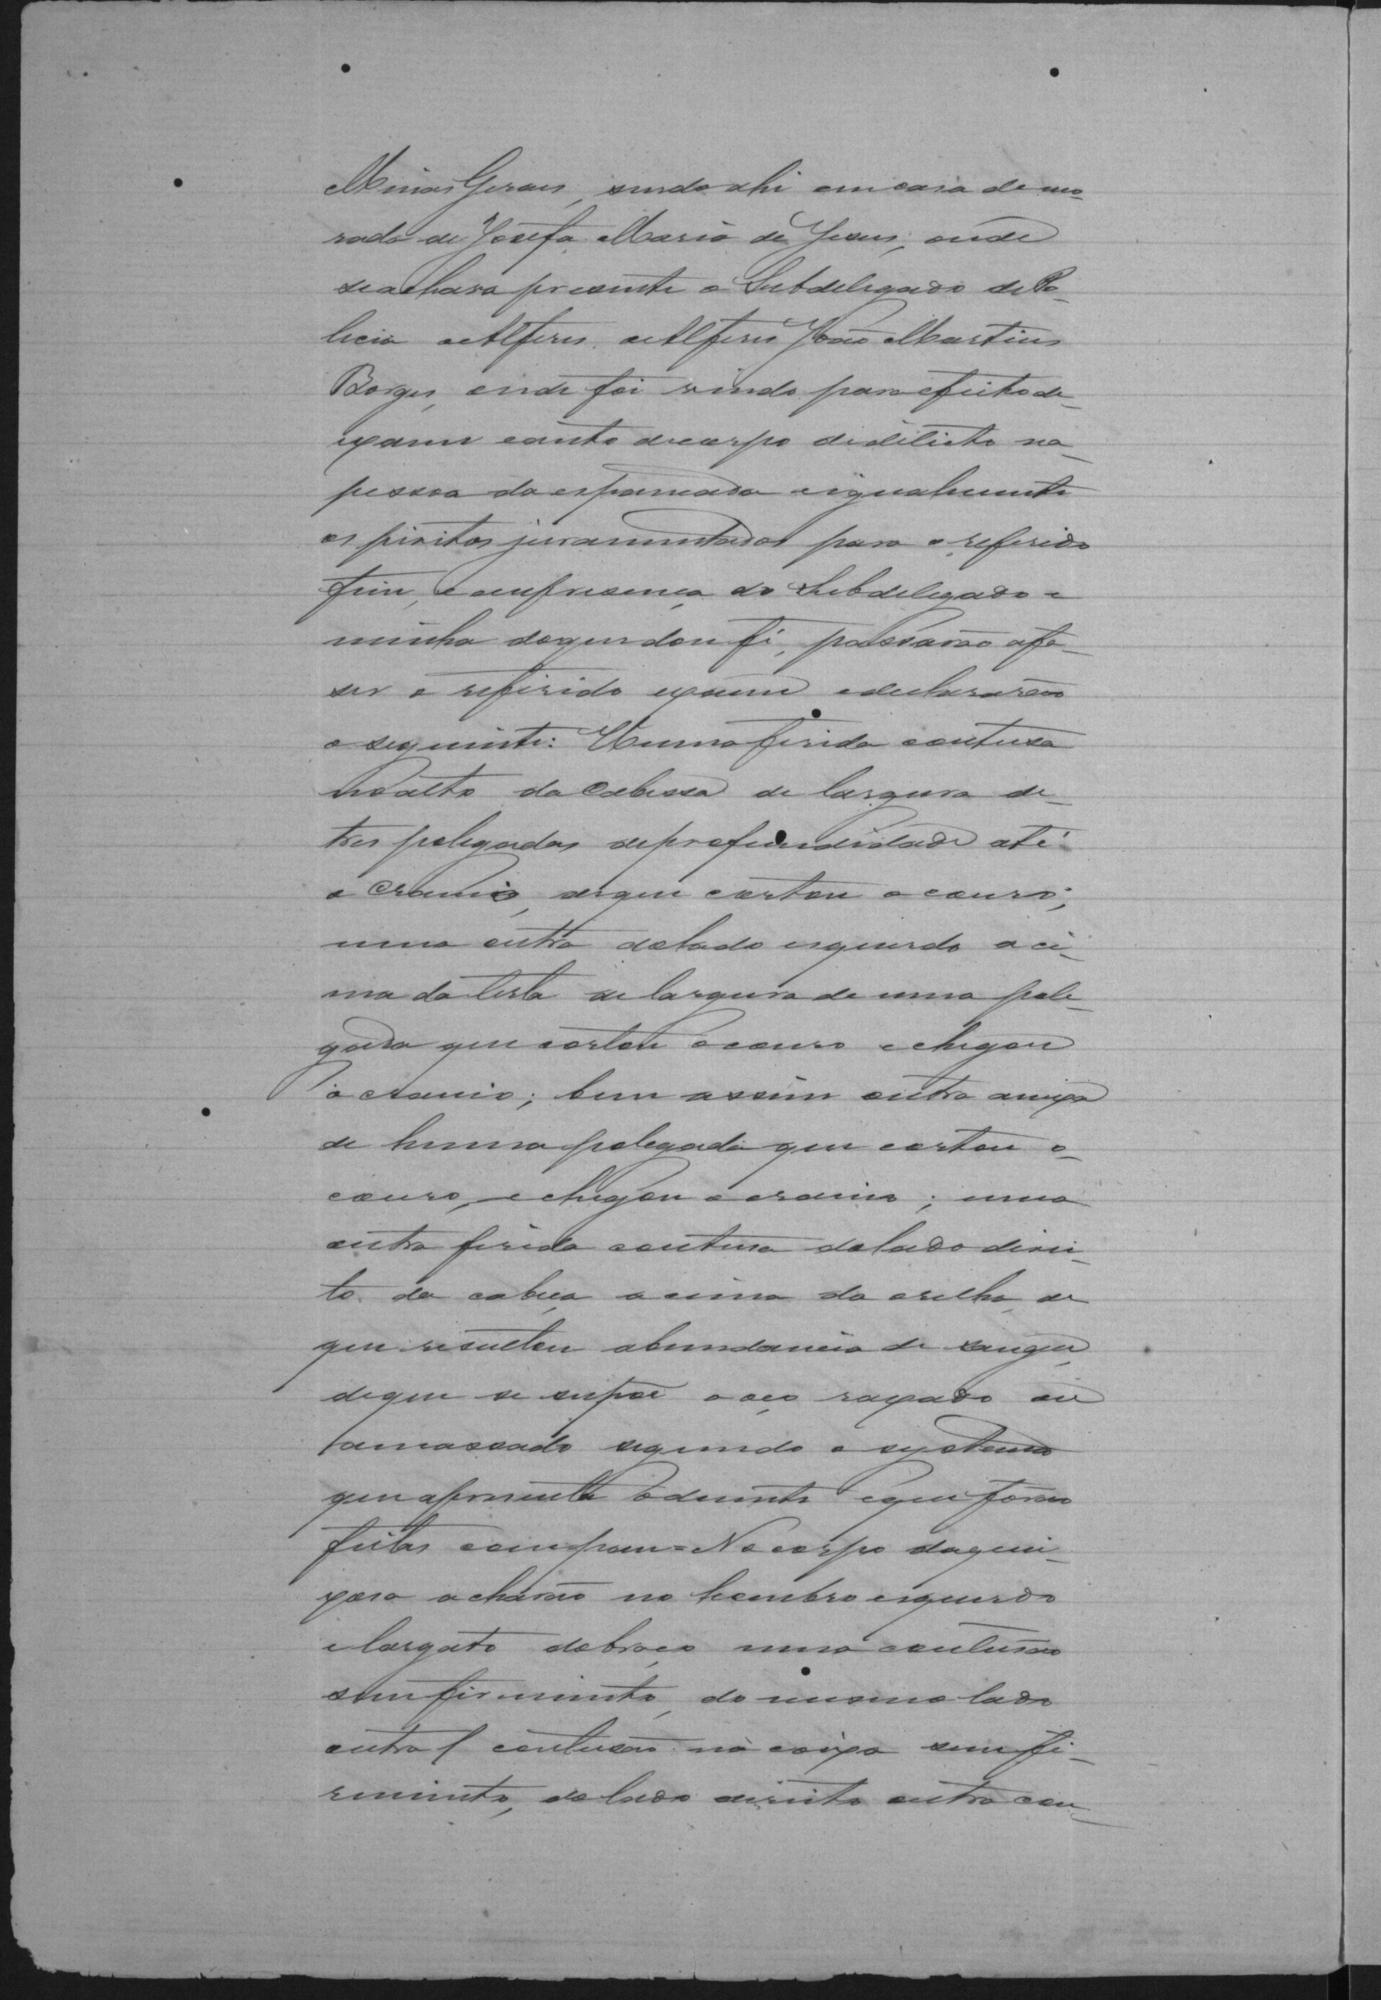 Minas Geraes, sendo ahi em casa de mo-
rada de Josefa Maria de Jesus, onde
se achava presente o Subdelegado de Po-
licia o Alferes o Alferes João Martins
Borges, onde foi vindo para efeito de-
exame corpo de delicto na-
pessoa da espancada e igualmente
os piritos juramentados para o referido
fim, e em presença do Subdelegado e
minha do que dou fé, passarão afa-
ser o referido exame e declararão
o seguinte: Huma ferida contusa
no alto da Cabessa de largura de-
tres polegadas de profundidade até
o Cranio, de que cortou o couro;
uma outra do lado esquerdo a ci-
ma da testa de largura de uma pole-
gada que cortou o couro e chegou
o cranio; bem assim outra
de huma polegada que cortou o-
couro, e chegou o cranio; uma
outra ferida contusa do lado direi-
to da cabeça acima da orelha de
que resultou abundancia de sangue,
de que se supoe o oço raxado ou
amassado segundo o systema
que apresenta o duente e que forão
feitas com pau = No corpo da quei-
xosa acharão no hombro esquerdo
e largato do braço uma contusão
sem ferimento, do mesmo lado
outra contusão na coixa sem fe-
rimento, do lado direito outra con-